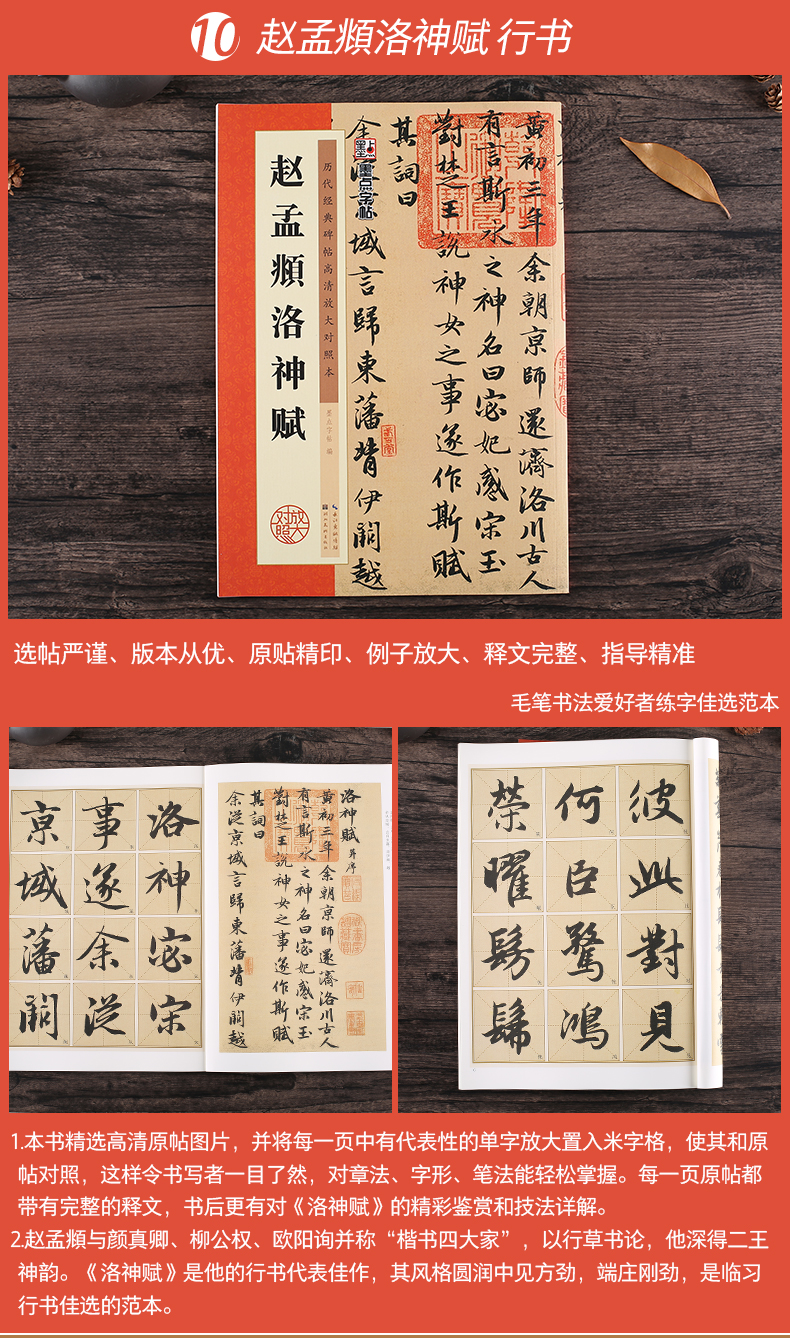 10 赵孟頫洛神赋 行书
赵孟頫洛神赋
历代经典碑帖高清放大对照本
墨点字帖 编
放大
对照
墨点
墨点字帖
黄初三年余朝京師還濟洛川古人
有言斯水之神名曰宓妃感宋玉
對楚王說神女之事遂作斯賦
其詞曰
余從京域言歸東藩背伊闕越
选帖严谨、版本从优、原贴精印、例子放大、释文完整、指导精准
毛笔书法爱好者练字佳选范本
洛神宓宋
事遂余從
京域藩闕
洛神賦 并序
黄初三年余朝京師還濟洛川古人
有言斯水之神名曰宓妃感宋玉
對楚王說神女之事遂作斯賦
其詞曰
余從京域言歸東藩背伊闕越
彼此對見
何臣驚鴻
榮曜髣髴
1.本书精选高清原帖图片，并将每一页中有代表性的单字放大置入米字格，使其和原
帖对照，这样令书写者一目了然，对章法、字形、笔法能轻松掌握。每一页原帖都
带有完整的释文，书后更有对《洛神赋》的精彩鉴赏和技法详解。
2.赵孟頫与颜真卿、柳公权、欧阳询并称“楷书四大家”，以行草书论，他深得二王
神韵。《洛神赋》是他的行书代表佳作，其风格圆润中见方劲，端庄刚劲，是临习
行书佳选的范本。